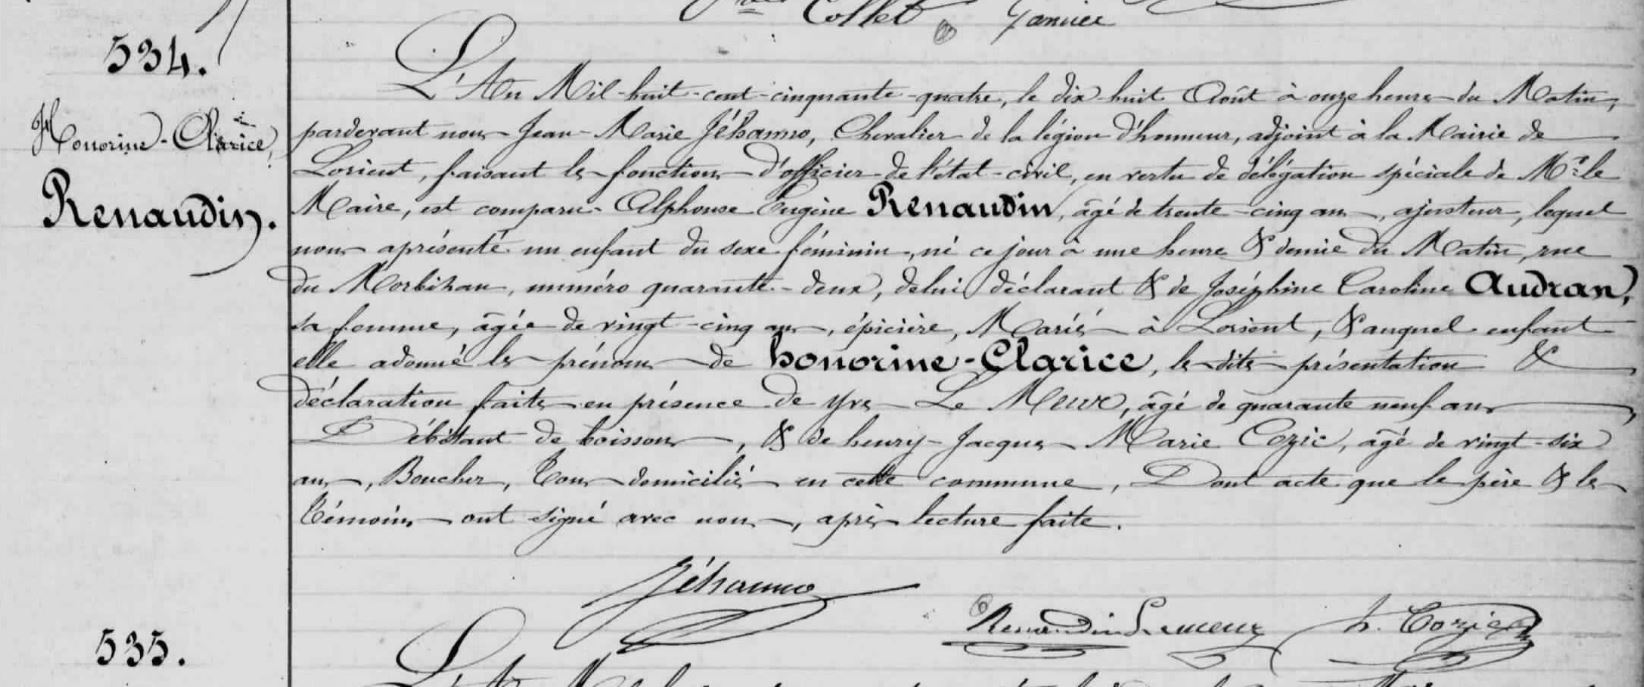 Collet Janvier
534.
Honorine-Clarice
Renaudin.
L'An Mil-huit-cent-cinquante-quatre, le dix-huit Août à onze heures du Matin,
pardevant nous Jean-Marie Jéhanno, Chevalier de la légion d'honneur, adjoint à la Mairie de
Lorient, faisant les fonctions d'officier de l'état-civil, en vertu de délégation spéciale de Mr. le
Maire, est comparu Alphonse Eugène Renaudin, âgé de trente-cinq ans, ajusteur, lequel
nous a présenté un enfant du sexe féminin, né ce jour à une heure & demie du Matin, rue
du Morbihan, numéro quarante-deux, de lui déclarant & de Joséphine Caroline Audran,
sa femme, âgée de vingt-cinq ans, épicière, Mariés à Lorient, & auquel enfant
elle a donné les prénoms de honorine-Clarice, les dites présentation &
déclaration faites en présence de Yves Le Meur, âgé de quarante neuf ans
Débitant de boissons, & de henry-Jacques Marie Cozic, âgé de vingt-six
ans, Boucher, Tous domiciliés en cette commune, Dont acte que le père & les
Témoins ont signé avec nous, après lecture faite.
Jéhanno
Renaudin Lemeur h. Cozic
535.
L'An